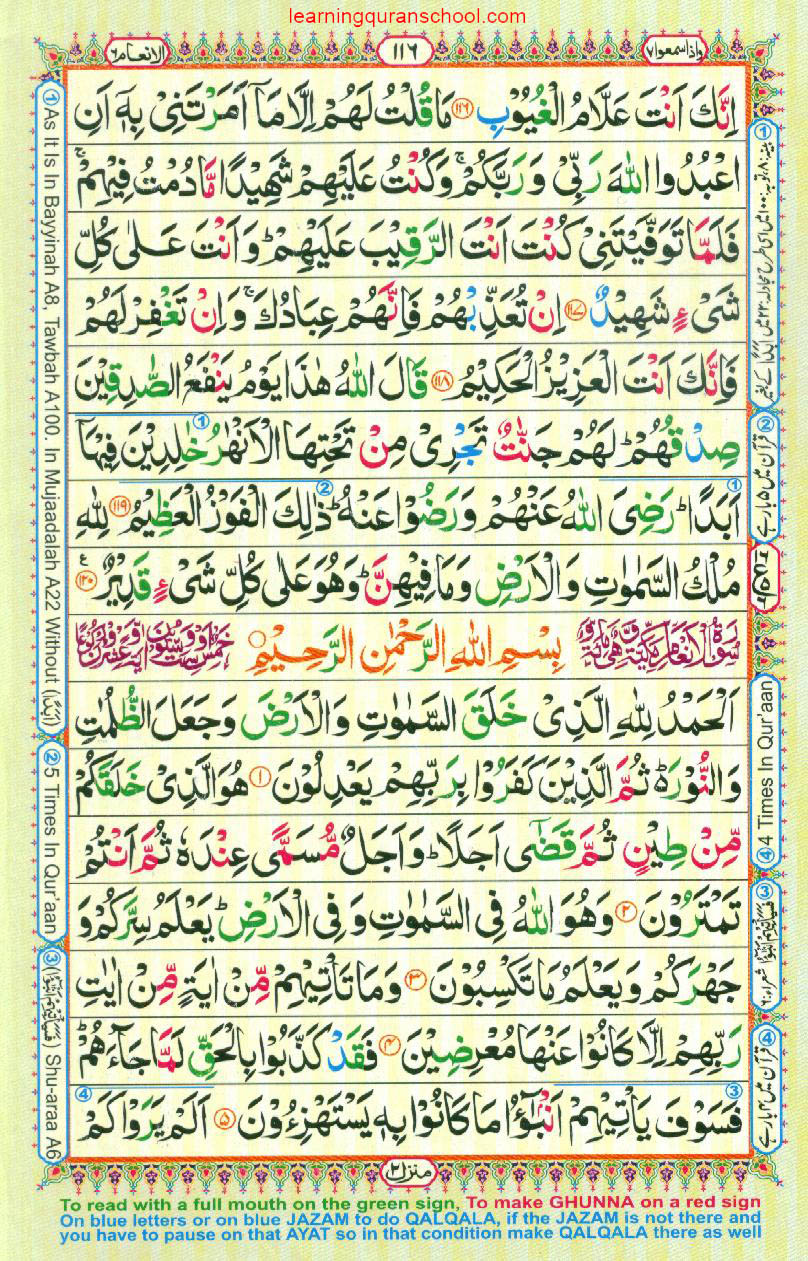 learningquranschool.com
واذا سمعوا ٧
١١٦
الانعام ٦
اِنَّكَ اَنْتَ عَلَّامُ الْغُيُوْبِ ١١٦ مَا قُلْتُ لَهُمْ اِلَّا مَاۤ اَمَرْتَنِىْ بِهٖۤ اَنِ
اعْبُدُوا اللّٰهَ رَبِّىْ وَ رَبَّكُمْ ۚ وَكُنْتُ عَلَيْهِمْ شَهِيْدًا مَّا دُمْتُ فِيْهِمْ ۚ
فَلَمَّا تَوَفَّيْتَنِىْ كُنْتَ اَنْتَ الرَّقِيْبَ عَلَيْهِمْ ؕ وَ اَنْتَ عَلٰى كُلِّ
شَىْءٍ شَهِيْدٌ ١١٧ اِنْ تُعَذِّبْهُمْ فَاِنَّهُمْ عِبَادُكَ ۚ وَاِنْ تَغْفِرْ لَهُمْ
فَاِنَّكَ اَنْتَ الْعَزِيْزُ الْحَكِيْمُ ١١٨ قَالَ اللّٰهُ هٰذَا يَوْمُ يَنْفَعُ الصّٰدِقِيْنَ
صِدْقُهُمْ ؕ لَهُمْ جَنّٰتٌ تَجْرِىْ مِنْ تَحْتِهَا الْاَنْهٰرُ خٰلِدِيْنَ فِيْهَاۤ
اَبَدًا ؕ رَضِىَ اللّٰهُ عَنْهُمْ وَرَضُوْا عَنْهُ ؕ ذٰلِكَ الْفَوْزُ الْعَظِيْمُ ١١٩ لِلّٰهِ
مُلْكُ السَّمٰوٰتِ وَالْاَرْضِ وَمَا فِيْهِنَّ ؕ وَهُوَ عَلٰى كُلِّ شَىْءٍ قَدِيْرٌ ١٢٠
بِسْمِ اللّٰهِ الرَّحْمٰنِ الرَّحِيْمِ
اَلْحَمْدُ لِلّٰهِ الَّذِىْ خَلَقَ السَّمٰوٰتِ وَالْاَرْضَ وَجَعَلَ الظُّلُمٰتِ
وَالنُّوْرَ ۬ؕ ثُمَّ الَّذِيْنَ كَفَرُوْا بِرَبِّهِمْ يَعْدِلُوْنَ ١ هُوَ الَّذِىْ خَلَقَكُمْ
مِّنْ طِيْنٍ ثُمَّ قَضٰۤى اَجَلًا ؕ وَاَجَلٌ مُّسَمًّى عِنْدَهٗ ثُمَّ اَنْتُمْ
تَمْتَرُوْنَ ٢ وَهُوَ اللّٰهُ فِى السَّمٰوٰتِ وَ فِى الْاَرْضِ ؕ يَعْلَمُ سِرَّكُمْ وَ
جَهْرَكُمْ وَ يَعْلَمُ مَا تَكْسِبُوْنَ ٣ وَمَا تَاْتِيْهِمْ مِّنْ اٰيَةٍ مِّنْ اٰيٰتِ
رَبِّهِمْ اِلَّا كَانُوْا عَنْهَا مُعْرِضِيْنَ ٤ فَقَدْ كَذَّبُوْا بِالْحَقِّ لَمَّا جَآءَهُمْ ؕ
فَسَوْفَ يَاْتِيْهِمْ اَنْۢبٰٓؤُا مَا كَانُوْا بِهٖ يَسْتَهْزِءُوْنَ ٥ اَلَمْ يَرَوْا كَمْ
منزل ٢
① As It Is In Bayyinah A8, Tawbah A100. In Mujaadalah A22 Without (اَبَدًا)
② 5 Times In Qur'aan
③ (فَسَيَاْتِيْهِمْ اَنْۢبٰٓؤُا) Shu-araa A6
② قرآن میں ۵ بار ہے
④ 4 Times In Qur'aan
③ فَسَيَاْتِيْهِمْ اَنْۢبٰٓؤُا شعراء: ٦
④ قرآن میں ۴ بار ہے
To read with a full mouth on the green sign, To make GHUNNA on a red sign
On blue letters or on blue JAZAM to do QALQALA, if the JAZAM is not there and
you have to pause on that AYAT so in that condition make QALQALA there as well